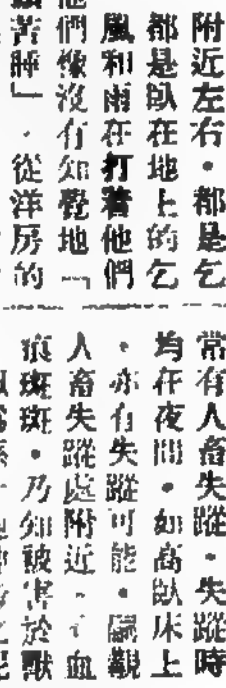 附近左右·都是乞
都是臥在地上的乞
風和雨在打着他們
們像沒有知覺地「
睡」·從洋房的
常有人畜失蹤·失蹤時
均在夜間·如高臥床上
·亦有失蹤可能·
人畜失蹤處附近·血
痕斑斑·乃知被害於獸